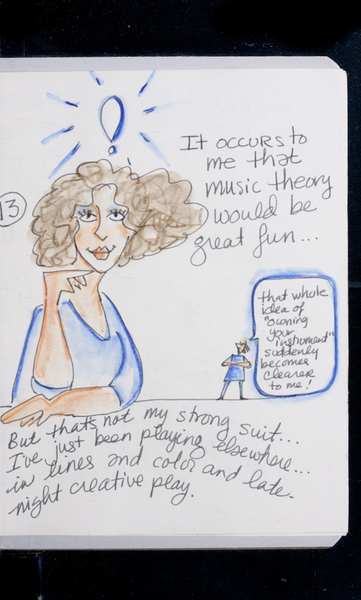 13
It occurs to
me that
music theory
would be
great fun...
that whole
idea of
"owning
your
instrument"
suddenly
becomes
clearer
to me!
But that's not my strong suit...
I've just been playing elsewhere...
in lines and color and late-
night creative play.